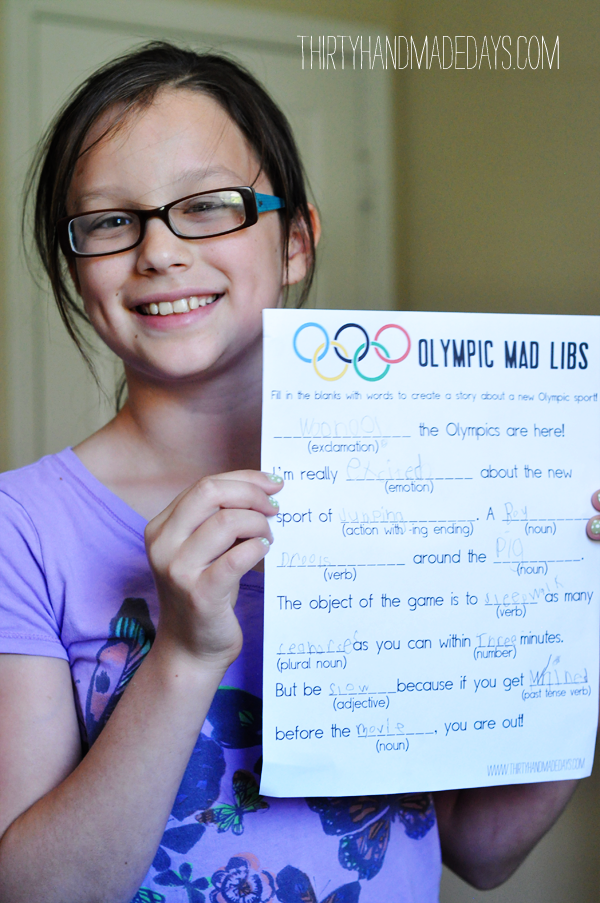 THIRTYHANDMADEDAYS.COM
OLYMPIC MAD LIBS
Fill in the blanks with words to create a story about a new Olympic sport!
the Olympics are here!
(exclamation)
I'm really excited about the new
(emotion)
sport of jumping. A Boy
(action with -ing ending) (noun)
around the Pig.
(verb) (noun)
The object of the game is to sleepwalk as many
(verb)
as you can within Three minutes.
(plural noun) (number)
But be slow because if you get
(adjective) (past tense verb)
before the movie, you are out!
(noun)
WWW.THIRTYHANDMADEDAYS.COM